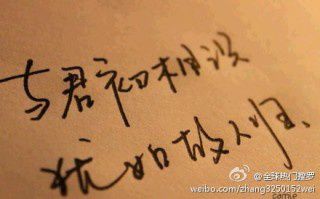 与君初相识
犹如故人归.
@全球热门搜罗
weibo.com/zhang3250152wei
sample